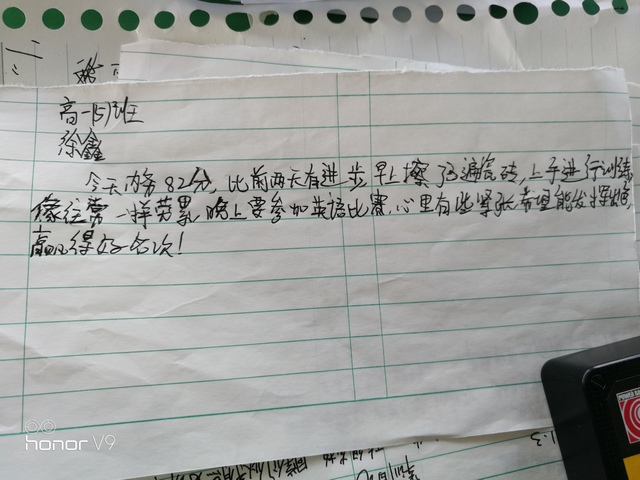 高一(5)班
徐鑫
今天内务82分,比前两天有进步,早上擦了3遍瓷砖,上午进行训练,
像往常一样劳累,晚上要参加英语比赛,心里有些紧张希望能发挥好,
赢得好名次!
honor V9